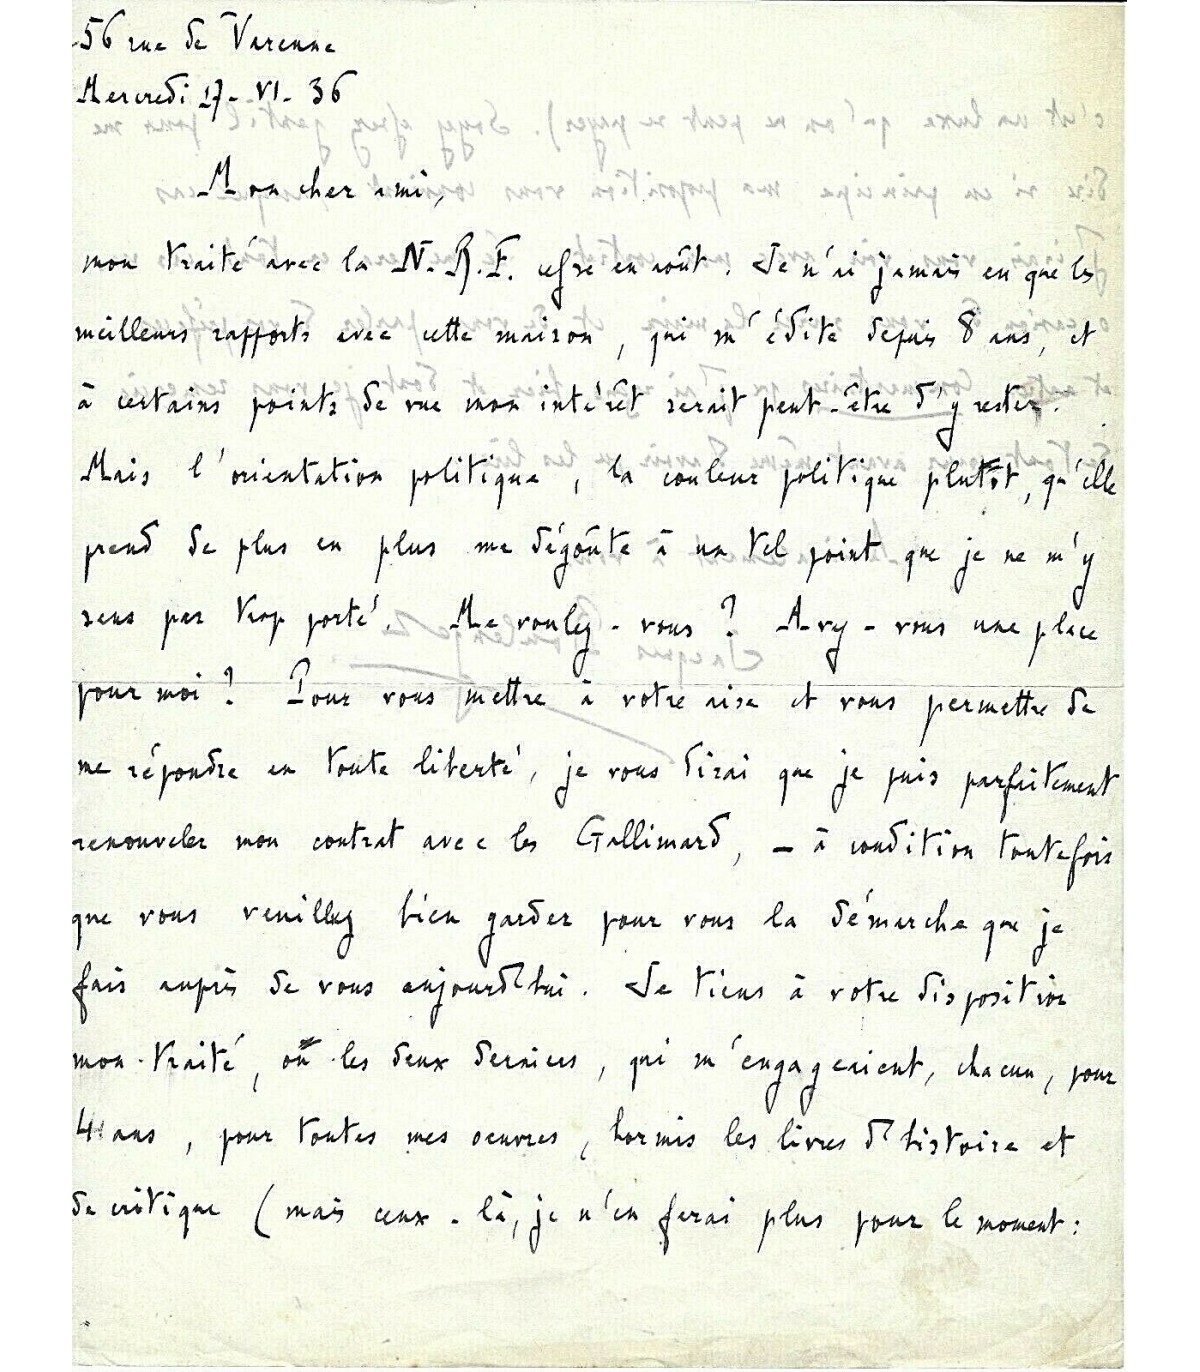 56 rue de Varenne
Mercredi 17-VI-36
Mon cher ami,
mon traité avec la N.R.F. cesse en août. Je n'ai jamais eu que les
meilleurs rapports avec cette maison, qui m'édite depuis 8 ans, et
à certains points de vue mon intérêt serait peut-être d'y rester.
Mais l'orientation politique, la couleur politique plutôt, qu'elle
prend de plus en plus me dégoûte à un tel point que je ne m'y
sens pas trop porté. Me voulez-vous ? Avez-vous une place
pour moi ? Pour vous mettre à votre aise et vous permettre de
me répondre en toute liberté, je vous dirai que je puis parfaitement
renouveler mon contrat avec les Gallimard, – à condition toutefois
que vous veuillez bien garder pour vous la démarche que je
fais auprès de vous aujourd'hui. Je tiens à votre disposition
mon traité, ou les deux derniers, qui m'engageaient, chacun, pour
4 ans, pour toutes mes oeuvres, hormis les livres d'histoire et
de critique (mais ceux-là, je n'en ferai plus pour le moment :